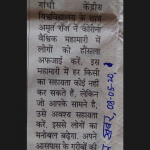 गांधी केंद्रीय
विश्वविद्यालय के छात्र
अमृत राज ने कोरोना
वैश्विक महामारी में
लोगों को हौसला
अफजाई करें. इस
महामारी में हर किसी
का सहायता कोई नहीं
कर सकते हैं, लेकिन
जो आपके सामने है,
उसे अवश्य सहायता
करें, इससे लोगों का
मनोबल बढ़ेगा. अपने
आसपास के गरीबों की
खबर, 08-05-22